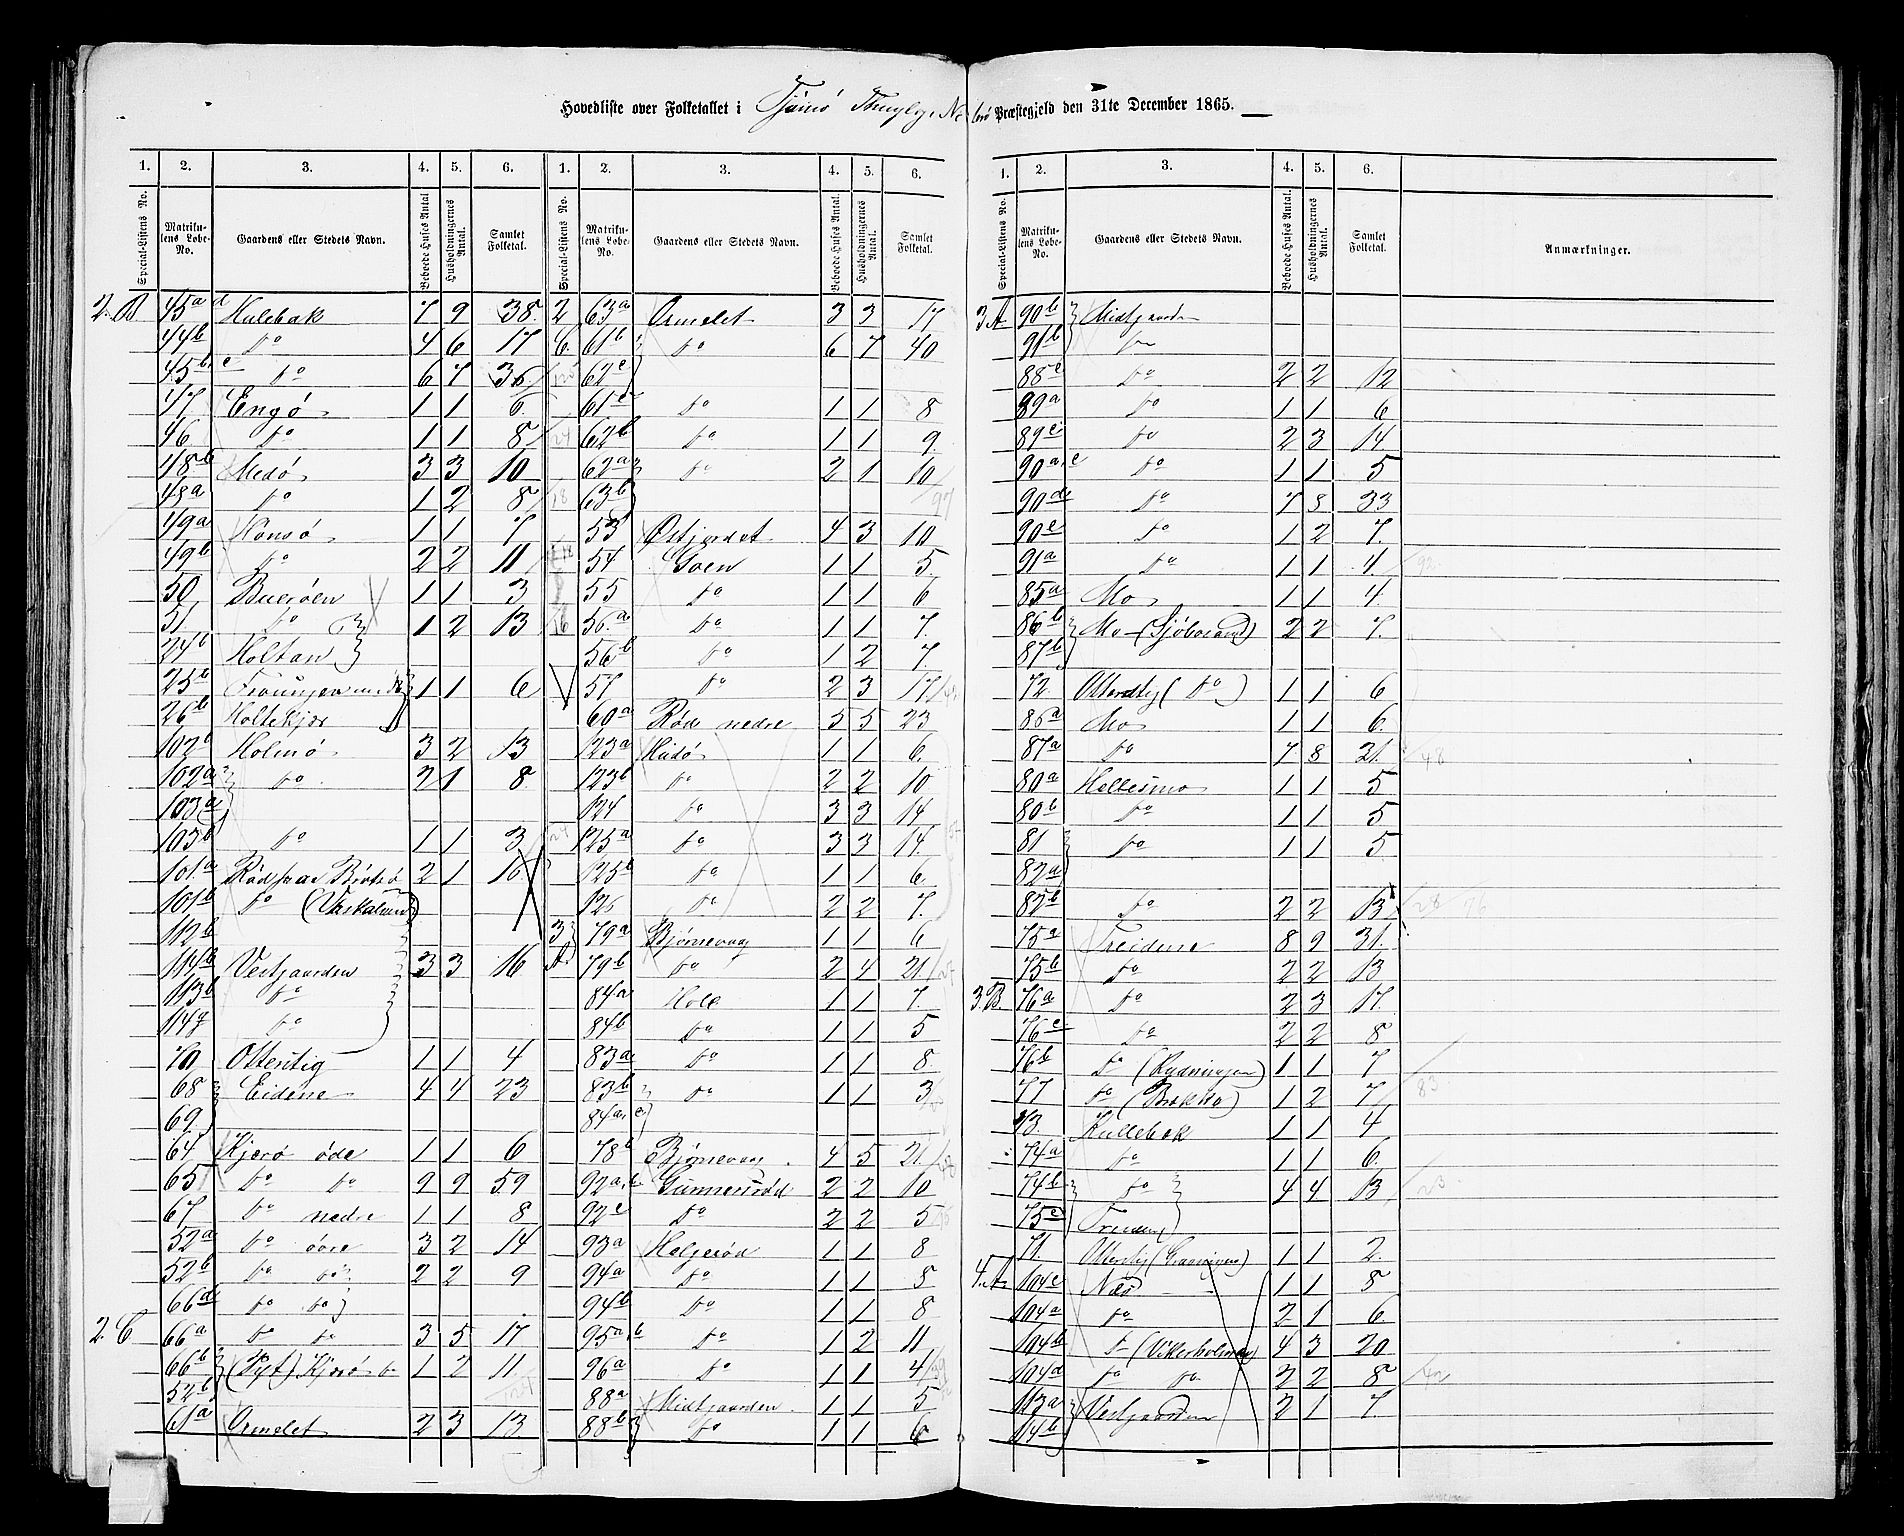 Hovedliste over Folketallet i Tjømø Thinglag, Nøtterø Præstegjeld den 31te December 1865.
1. 2. 3. 4. 5. 6. 1. 2. 3. 4. 5. 6.
Special-Listens No. Matrikulens Løbe-No. Gaardens eller Stedets Navn. Beboede Huses Antal. Husholdningernes Antal. Samlet Folketal. Special-Listens No. Matrikulens Løbe-No. Gaardens eller Stedets Navn. Beboede Huses Antal. Husholdningernes Antal. Samlet Folketal.
2. B 45a d Hulebak 7 9 38.
44b do 4 6 17
45b, c do 6 7 36.
47 Engø 1 1 6.
46 do 1 1 8
48b Medø 3 3 10
48a do 1 2 8
49a Honsø 1 1 7
49b do 2 2 11
50 Buerøen 1 1 3
51. do 1 2 13
24b Holtan
25b 1 1 6
26b Holtekjær
102b Holmø 3 2 13
102a do 2 1 8
103a
103b do 1 1 3
101.a Rød paa Brøtsø 2 1 16
101b do
112b
114b Vestgaarden 3 3 16
113b do
114g do
70 Otterstig 1 1 4
68 Eidene 4 4 23
69
64 Kjærø øde 1 1 6
65 do do 9 9 59
67 do nedre 1 1 8
52a do øvre 3 2 14
52b do do 2 2 9
66d do do
2. C 66a do do 3 5 17
66b (Pyt) Kjærø 1 2 11
52b
61a Ormelet 2 3 13
2 63a Ormelet 3 3 17
C. 61b do 6 7 40
62c
61c do 1 1 8
62b do 1 1 9.
62a do 2 1 10
63b
53 Østjordet 4 3 10
54 Goen 1 1 5.
55 do 1 1 6
56.a do 1 1 7.
56b do 1 2 7.
57 do 2 3 17
60a Rød nedre 5 5 23
123a Hudø 1 1 6.
123b do 2 2 10
124 do 3 3 14
125a do 3 3 14.
125b do 1 1 6.
126 do 2 2 7.
3 79a Bjørnevaag 1 1 6
A. 79b do 2 4 21
84a Holt 1 1 7.
84b do 1 1 5
83a do 1 1 8.
83b do 1 1 3
84a, c
78b Bjørnevaag 4 5 21.
92a, b Gunnersrød 2 2 10
92c do 2 2 5
93a Holgerød 1 1 8
94a do 1 1 5
94b do 1 1 8
95a, b do 1 2 11
96a do 1 1 4
88a Midtgaarden 1 1 5
88b do 1 1 6
1. 2. 3. 4. 5. 6.
Special-Listens No. Matrikulens Løbe-No. Gaardens eller Stedets Navn. Beboede Huses Antal. Husholdningernes Antal. Samlet Folketal. Anmærkninger.
3 A 90b Midtgaarden
91b do
88c do 2 2 12
89a do 1 1 6
89c do 2 3 14
90a, c do 1 1 5
90d do 7 8 33
90e do 1 2 7.
91a do 1 1 4.
85a Mo 1 1 4.
86b Mo 2 2 7.
87b
72 Ottersty (do) 1 1 6
86a Mo 1 1 6.
87a do 7 8 31.
80a Hellesmo 1 1 5
80b do 1 1 5
81 do 1 1 5
82a
82b do 2 2 13
75a Treidene 8 9 31.
75b do 2 2 13
3. B. 76a do 2 3 17.
76c do 2 2 8
76b do (Rydningen) 1 1 7
77 do (Bakke) 1 2 7
73. Hullebak 1 1 4
74a do 1 1 6.
74b do 4 4 13
75c Treidene
71. Ottersty 1 1 2.
4. A 104c Næs 1 1 8
104a do 2 1 6
104b do (Vikerholmen) 4 3 20
104d do do 2 2 8
113a Vestgaarden 2 1 7.
114b